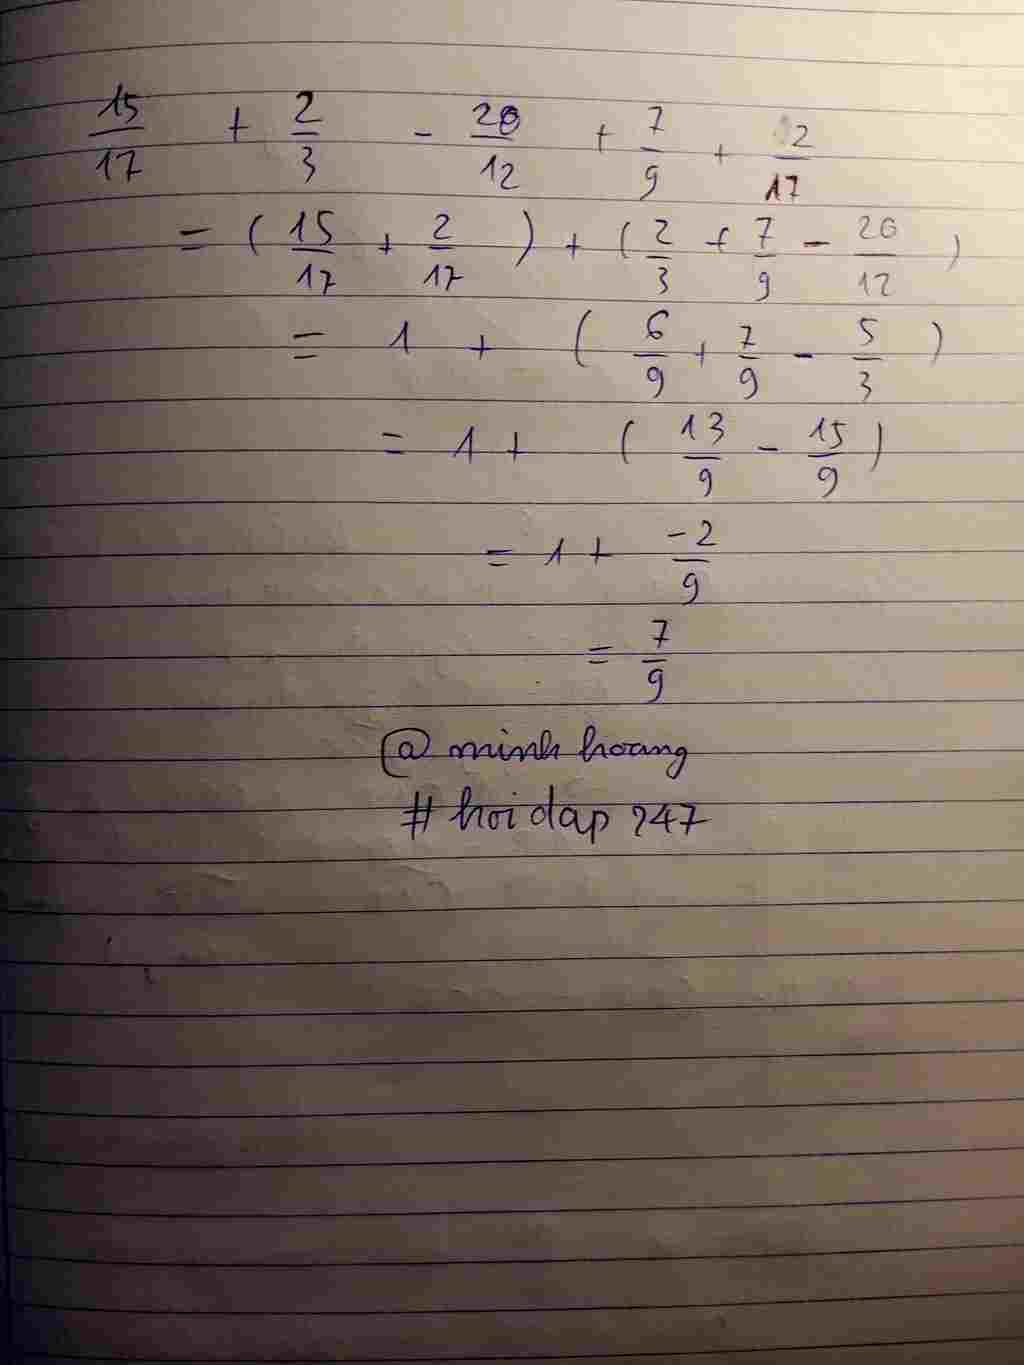 15/17 + 2/3 - 20/12 + 7/9 + 2/17
= (15/17 + 2/17) + (2/3 + 7/9 - 20/12)
= 1 + (6/9 + 7/9 - 5/3)
= 1 + (13/9 - 15/9)
= 1 + -2/9
= 7/9
@ minh hoang
# hoi dap 247